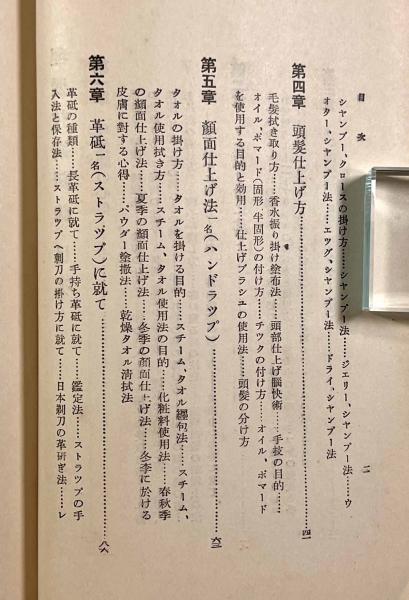 目次
二
シヤンプー、クロースの掛け方……シヤンプー法……ジエリー、シヤンプー法……ウ
オター、シヤンプー法……エツグ、シヤンプー法……ドライ、シヤンプー法
第四章 頭髪仕上げ方……四一
毛髪拭き取り方……香水振り掛け塗布法……頭部仕上げ脳快術……手技の目的……
オイル、ポマード（固形 半固形）の付け方……チツクの付け方……オイル、ポマード
を使用する目的と効用……仕上げブラシユの使用法……頭髪の分け方
第五章 顔面仕上げ法一名（ハンドラツプ）……六三
タオルの掛け方……タオルを掛ける目的……スチーム、タオル纒句法……スチーム、
タオル使用拭き方……スチーム、タオル使用法の目的……化粧料使用法……春秋季
の顔面仕上げ法……夏季の顔面仕上げ法……冬季の顔面仕上げ法……冬季に於ける
皮膚に對する心得……パウダー塗撒法……乾燥タオル清拭法
第六章 革砥一名（ストラツプ）に就て……八六
革砥の種類……長革砥に就て……手持ち革砥に就て……鑑定法……ストラツプの手
入法と保存法……ストラツプへ剃刀の掛け方に就て……日本剃刀の革研ぎ法……レ